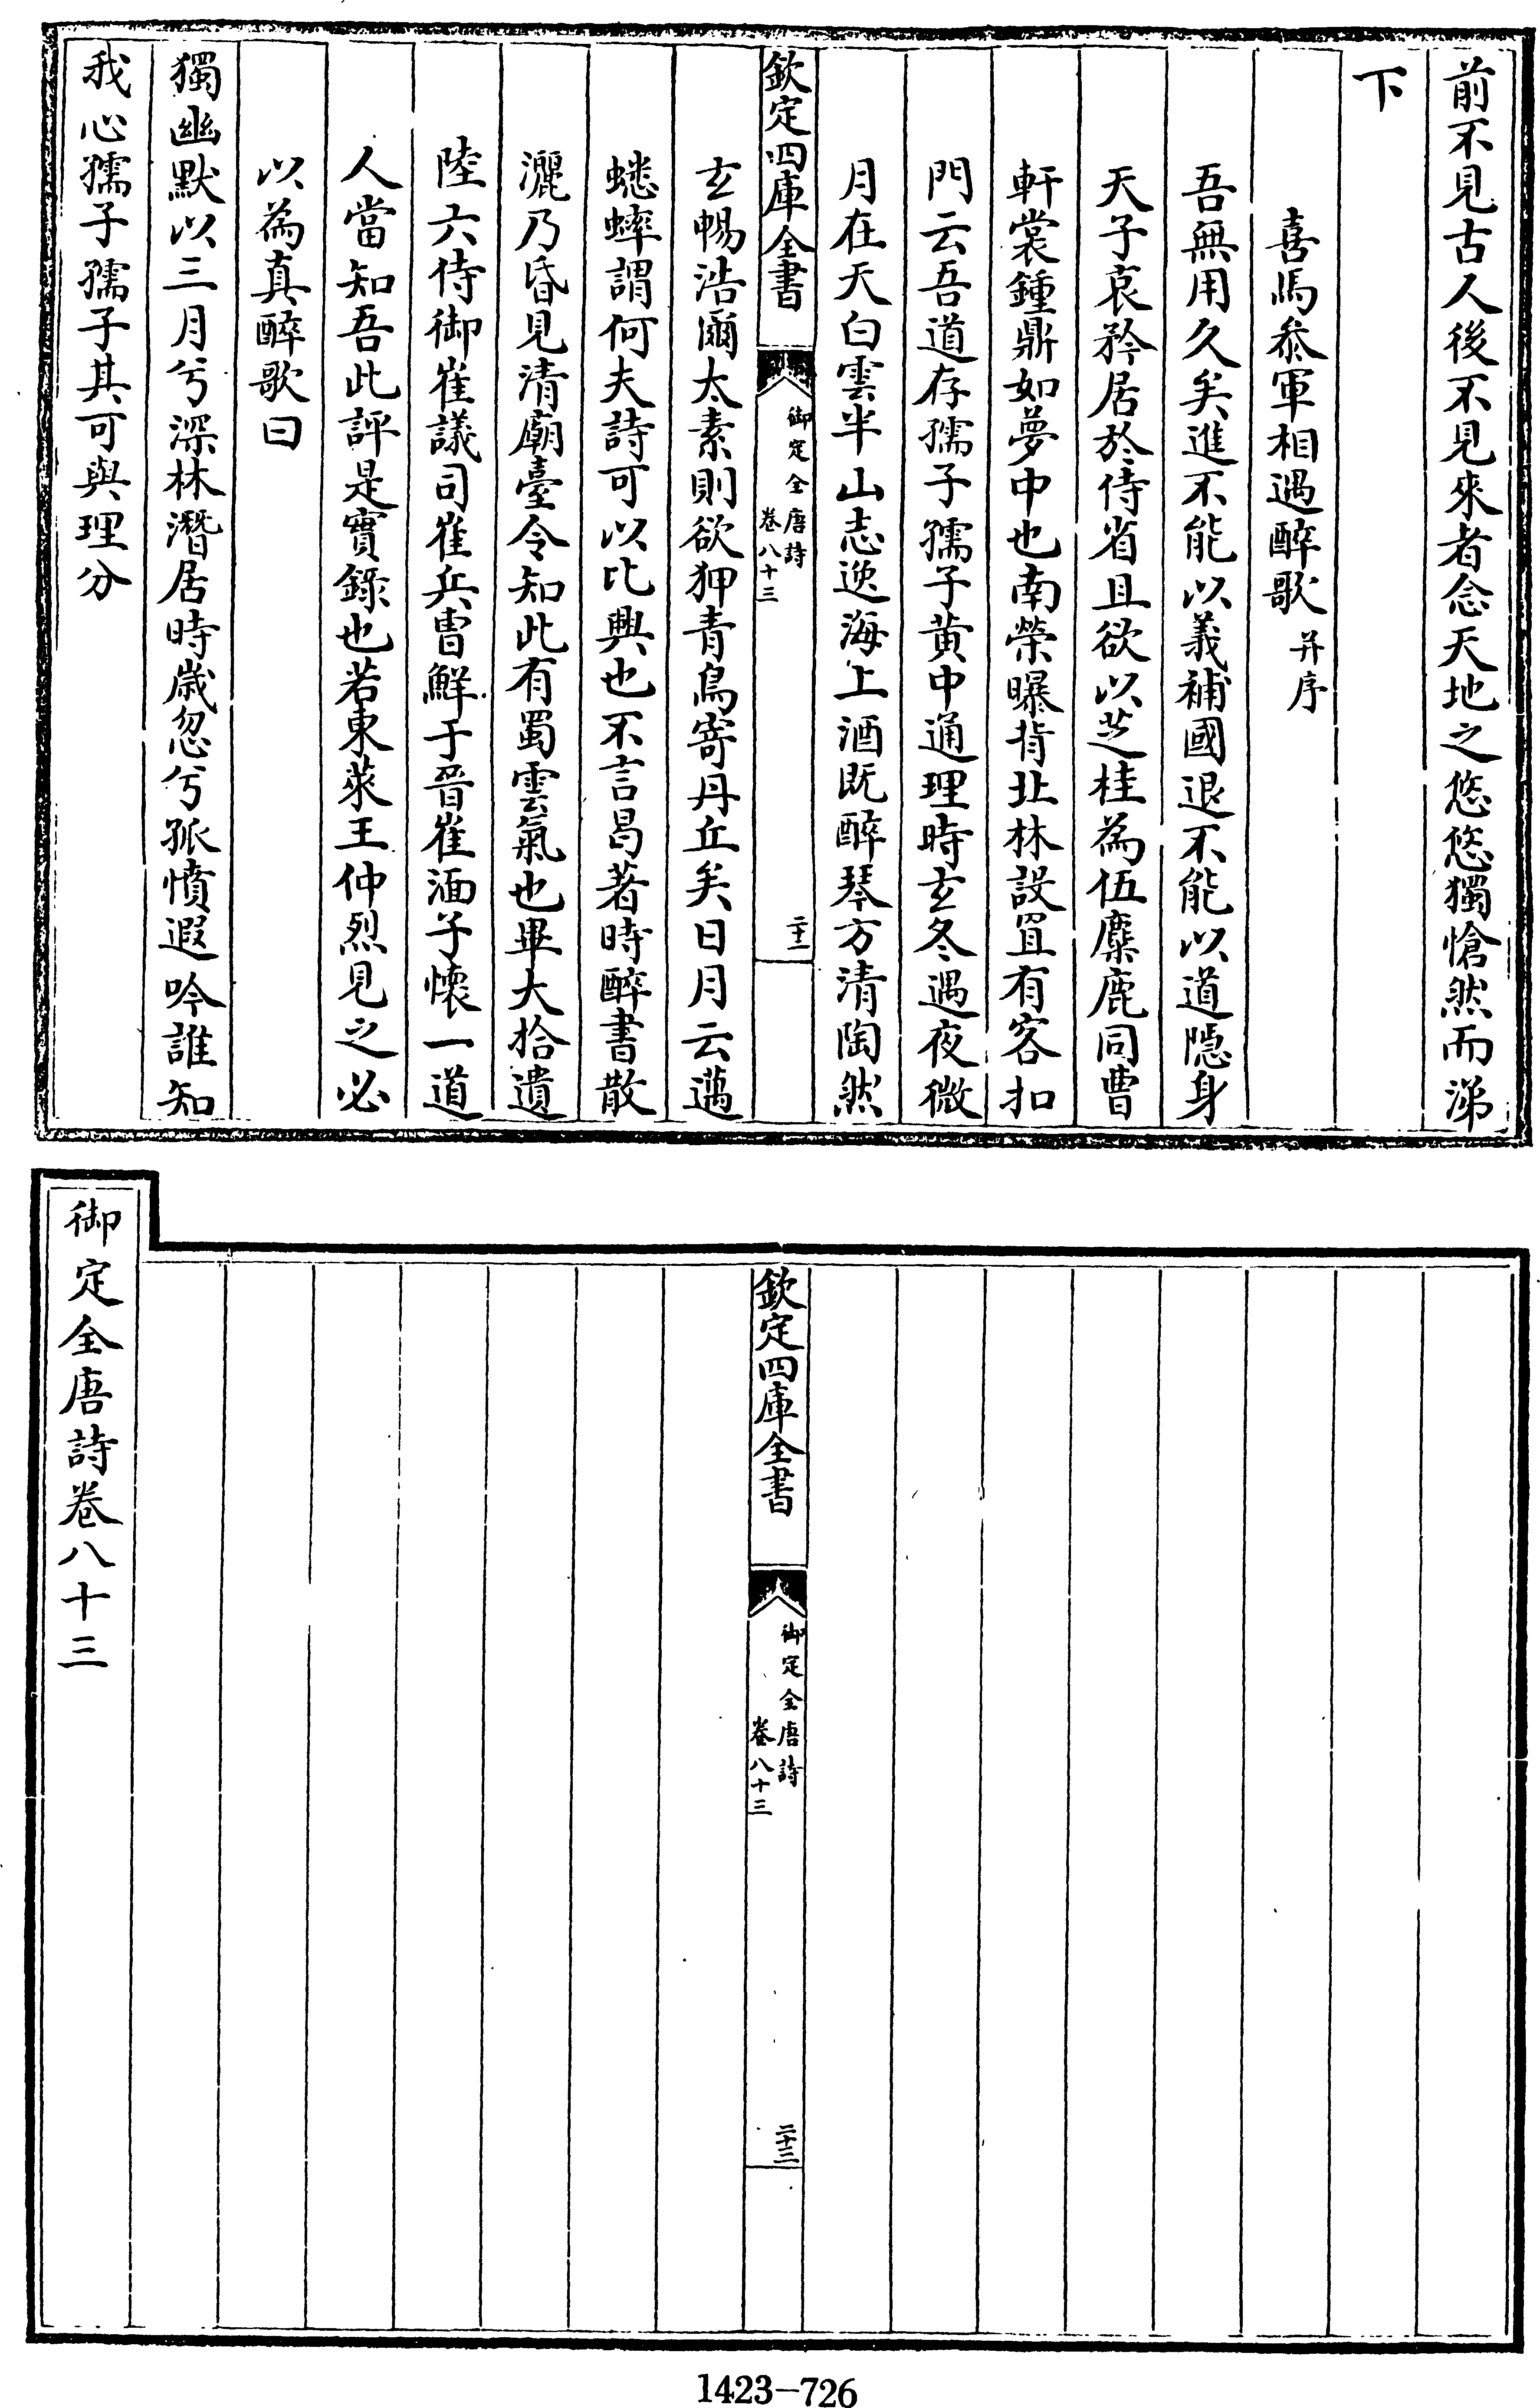 前不見古人後不見來者念天地之悠悠獨愴然而涕
下
喜馬參軍相遇醉歌 并序
吾無用久矣進不能以義補國退不能以道隱身
天子哀矜居於侍省且欲以芝桂為伍麋鹿同曹
軒裳鍾鼎如夢中也南榮曝背北林設罝有客扣
門云吾道存孺子孺子黃中通理時玄冬遇夜微
月在天白雲半山志逸海上酒既醉琴方清陶然
欽定四庫全書
御定全唐詩
卷八十三
二十二
玄暢浩爾太素則欲狎青鳥寄丹丘矣日月云邁
蟋蟀謂何夫詩可以比興也不言曷著時醉書散
灑乃昏見清廟臺令知此有蜀雲氣也畢大拾遺
陸六侍御崔議司崔兵曹鮮于晉崔湎子懷一道
人當知吾此評是實錄也若東萊王仲烈見之必
以為真醉歌曰
獨幽默以三月兮深林潛居時歲忽兮孤憤遐吟誰知
我心孺子孺子其可與理分
欽定四庫全書
御定全唐詩
卷八十三
二十三
御定全唐詩卷八十三
1423-726